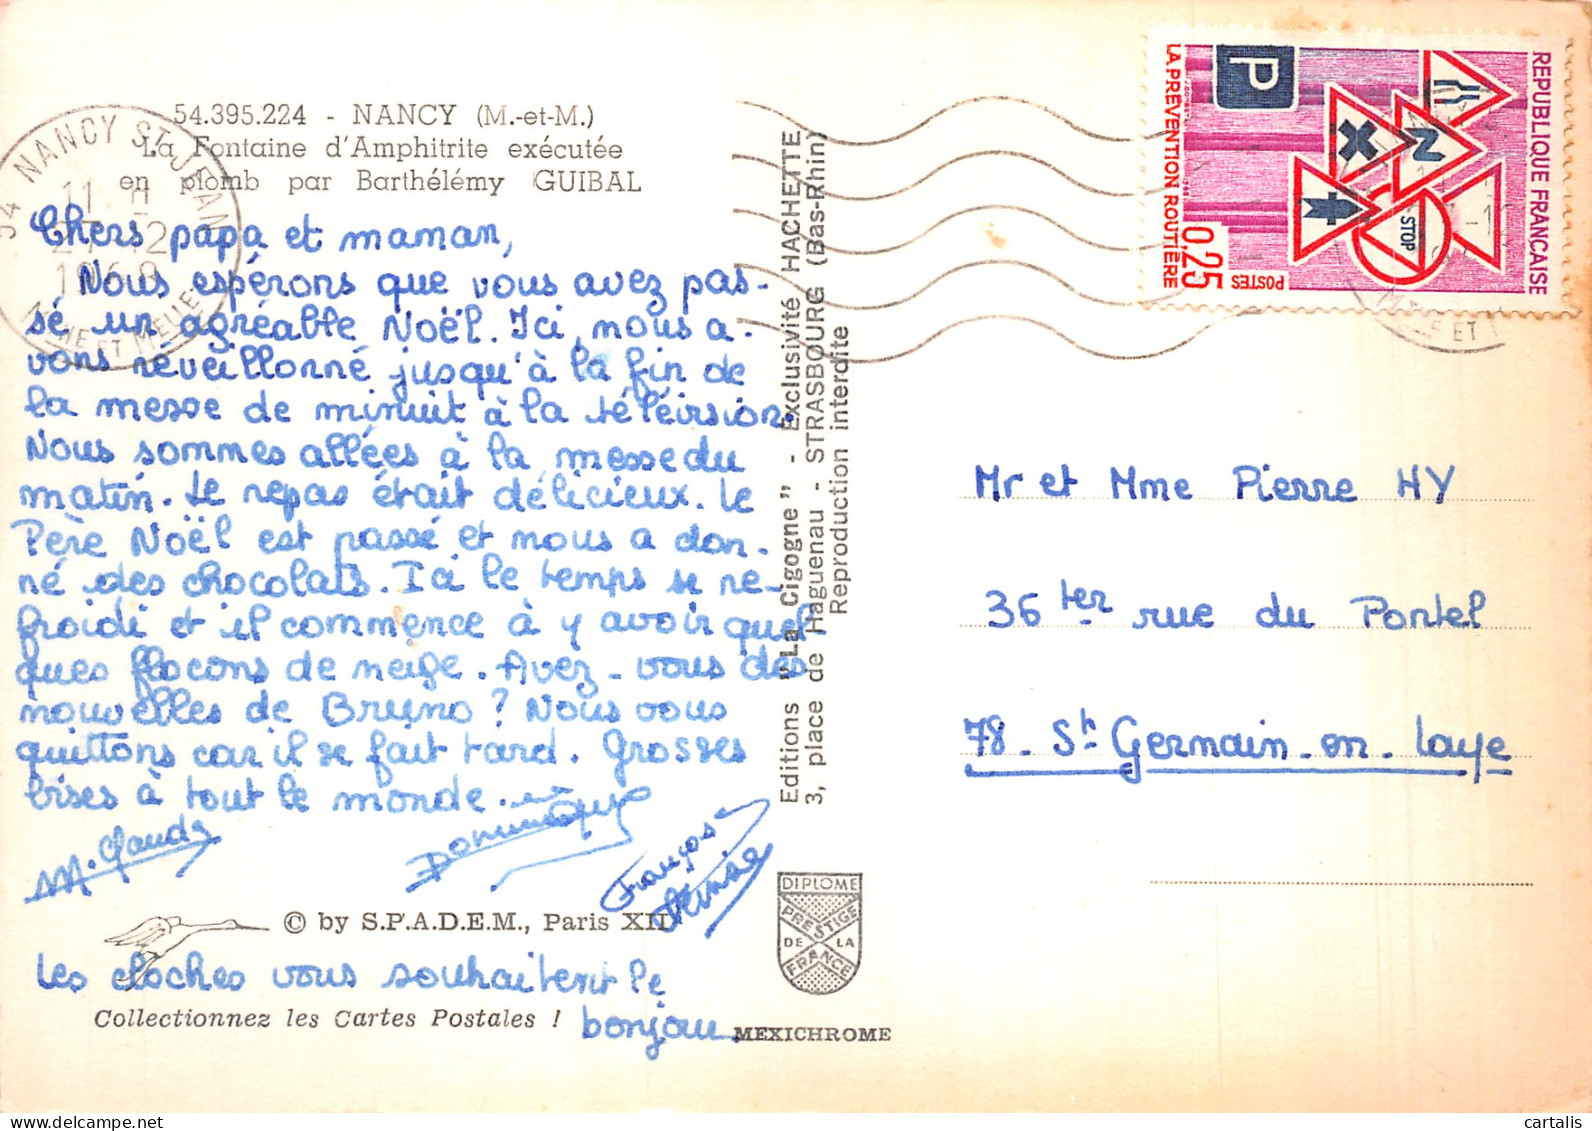 54.395.224 - NANCY (M.-et-M.)
La Fontaine d'Amphitrite exécutée
en plomb par Barthélémy GUIBAL
54 NANCY ST JEAN
11 H
27-12
1968
MTHE ET MELLE
Chers papa et maman,
Nous espérons que vous avez pas-
sé un agréable Noël. Ici, nous a-
vons réveillonné jusqu'à la fin de
la messe de minuit à la téléirsion.
Nous sommes allées à la messe du
matin. Le repas était délicieux. Le
Père Noël est passé et nous a don-
né des chocolats. Ici le temps se re-
froidi et il commence à y avoir quel-
ques flocons de neige. Avez-vous des
nouvelles de Bruno? Nous vous
quittons car il se fait tard. Grosses
bises à tout le monde.
M. Claude
Dominique
François
Denise
© by S.P.A.D.E.M., Paris XII
Les cloches vous souhaitent le
bonjour.
Collectionnez les Cartes Postales !
Editions "La Cigogne" - Exclusivité HACHETTE
3, place de Haguenau - STRASBOURG (Bas-Rhin)
Reproduction interdite
DIPLOME
PRESTIGE
DE LA
FRANCE
MEXICHROME
REPUBLIQUE FRANÇAISE
P
STOP
POSTES
0,25
LA PREVENTION ROUTIÈRE
Mr et Mme Pierre HY
36 ter rue du Pontel
78 - St Germain-en-Laye
cartalis